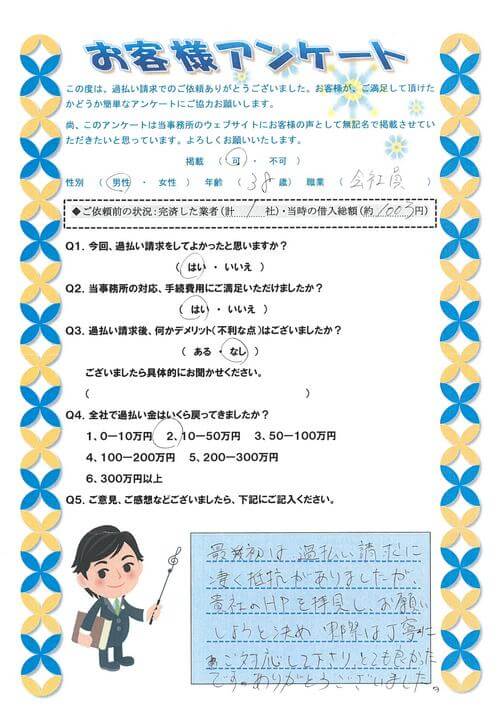 お客様アンケート
この度は、過払い請求でのご依頼ありがとうございました。お客様が、ご満足して頂けた
かどうか簡単なアンケートにご協力お願いします。
尚、このアンケートは当事務所のウェブサイトにお客様の声として無記名で掲載させてい
ただきたいと思っています。よろしくお願いいたします。
掲載 ( 可 ・ 不可 )
性別 ( 男性 ・ 女性 ) 年齢 ( 38 歳) 職業 ( 会社員 )
◆ご依頼前の状況:完済した業者(計 1 社)・当時の借入総額(約 100万円)
Q1. 今回、過払い請求をしてよかったと思いますか?
( はい ・ いいえ )
Q2. 当事務所の対応、手続費用にご満足いただけましたか?
( はい ・ いいえ )
Q3. 過払い請求後、何かデメリット(不利な点)はございましたか?
( ある ・ なし )
ございましたら具体的にお聞かせください。
( )
Q4. 全社で過払い金はいくら戻ってきましたか?
1、0ー10万円 2、10ー50万円 3、50ー100万円
4、100ー200万円 5、200ー300万円
6、300万円以上
Q5. ご意見、ご感想などございましたら、下記にご記入ください。
最初は過払い請求に
凄く抵抗がありましたが、
貴社のHPを拝見し、お願い
しようと決め 実際は丁寧に
ご対応して下さり、とても良かった
です。ありがとうございました。